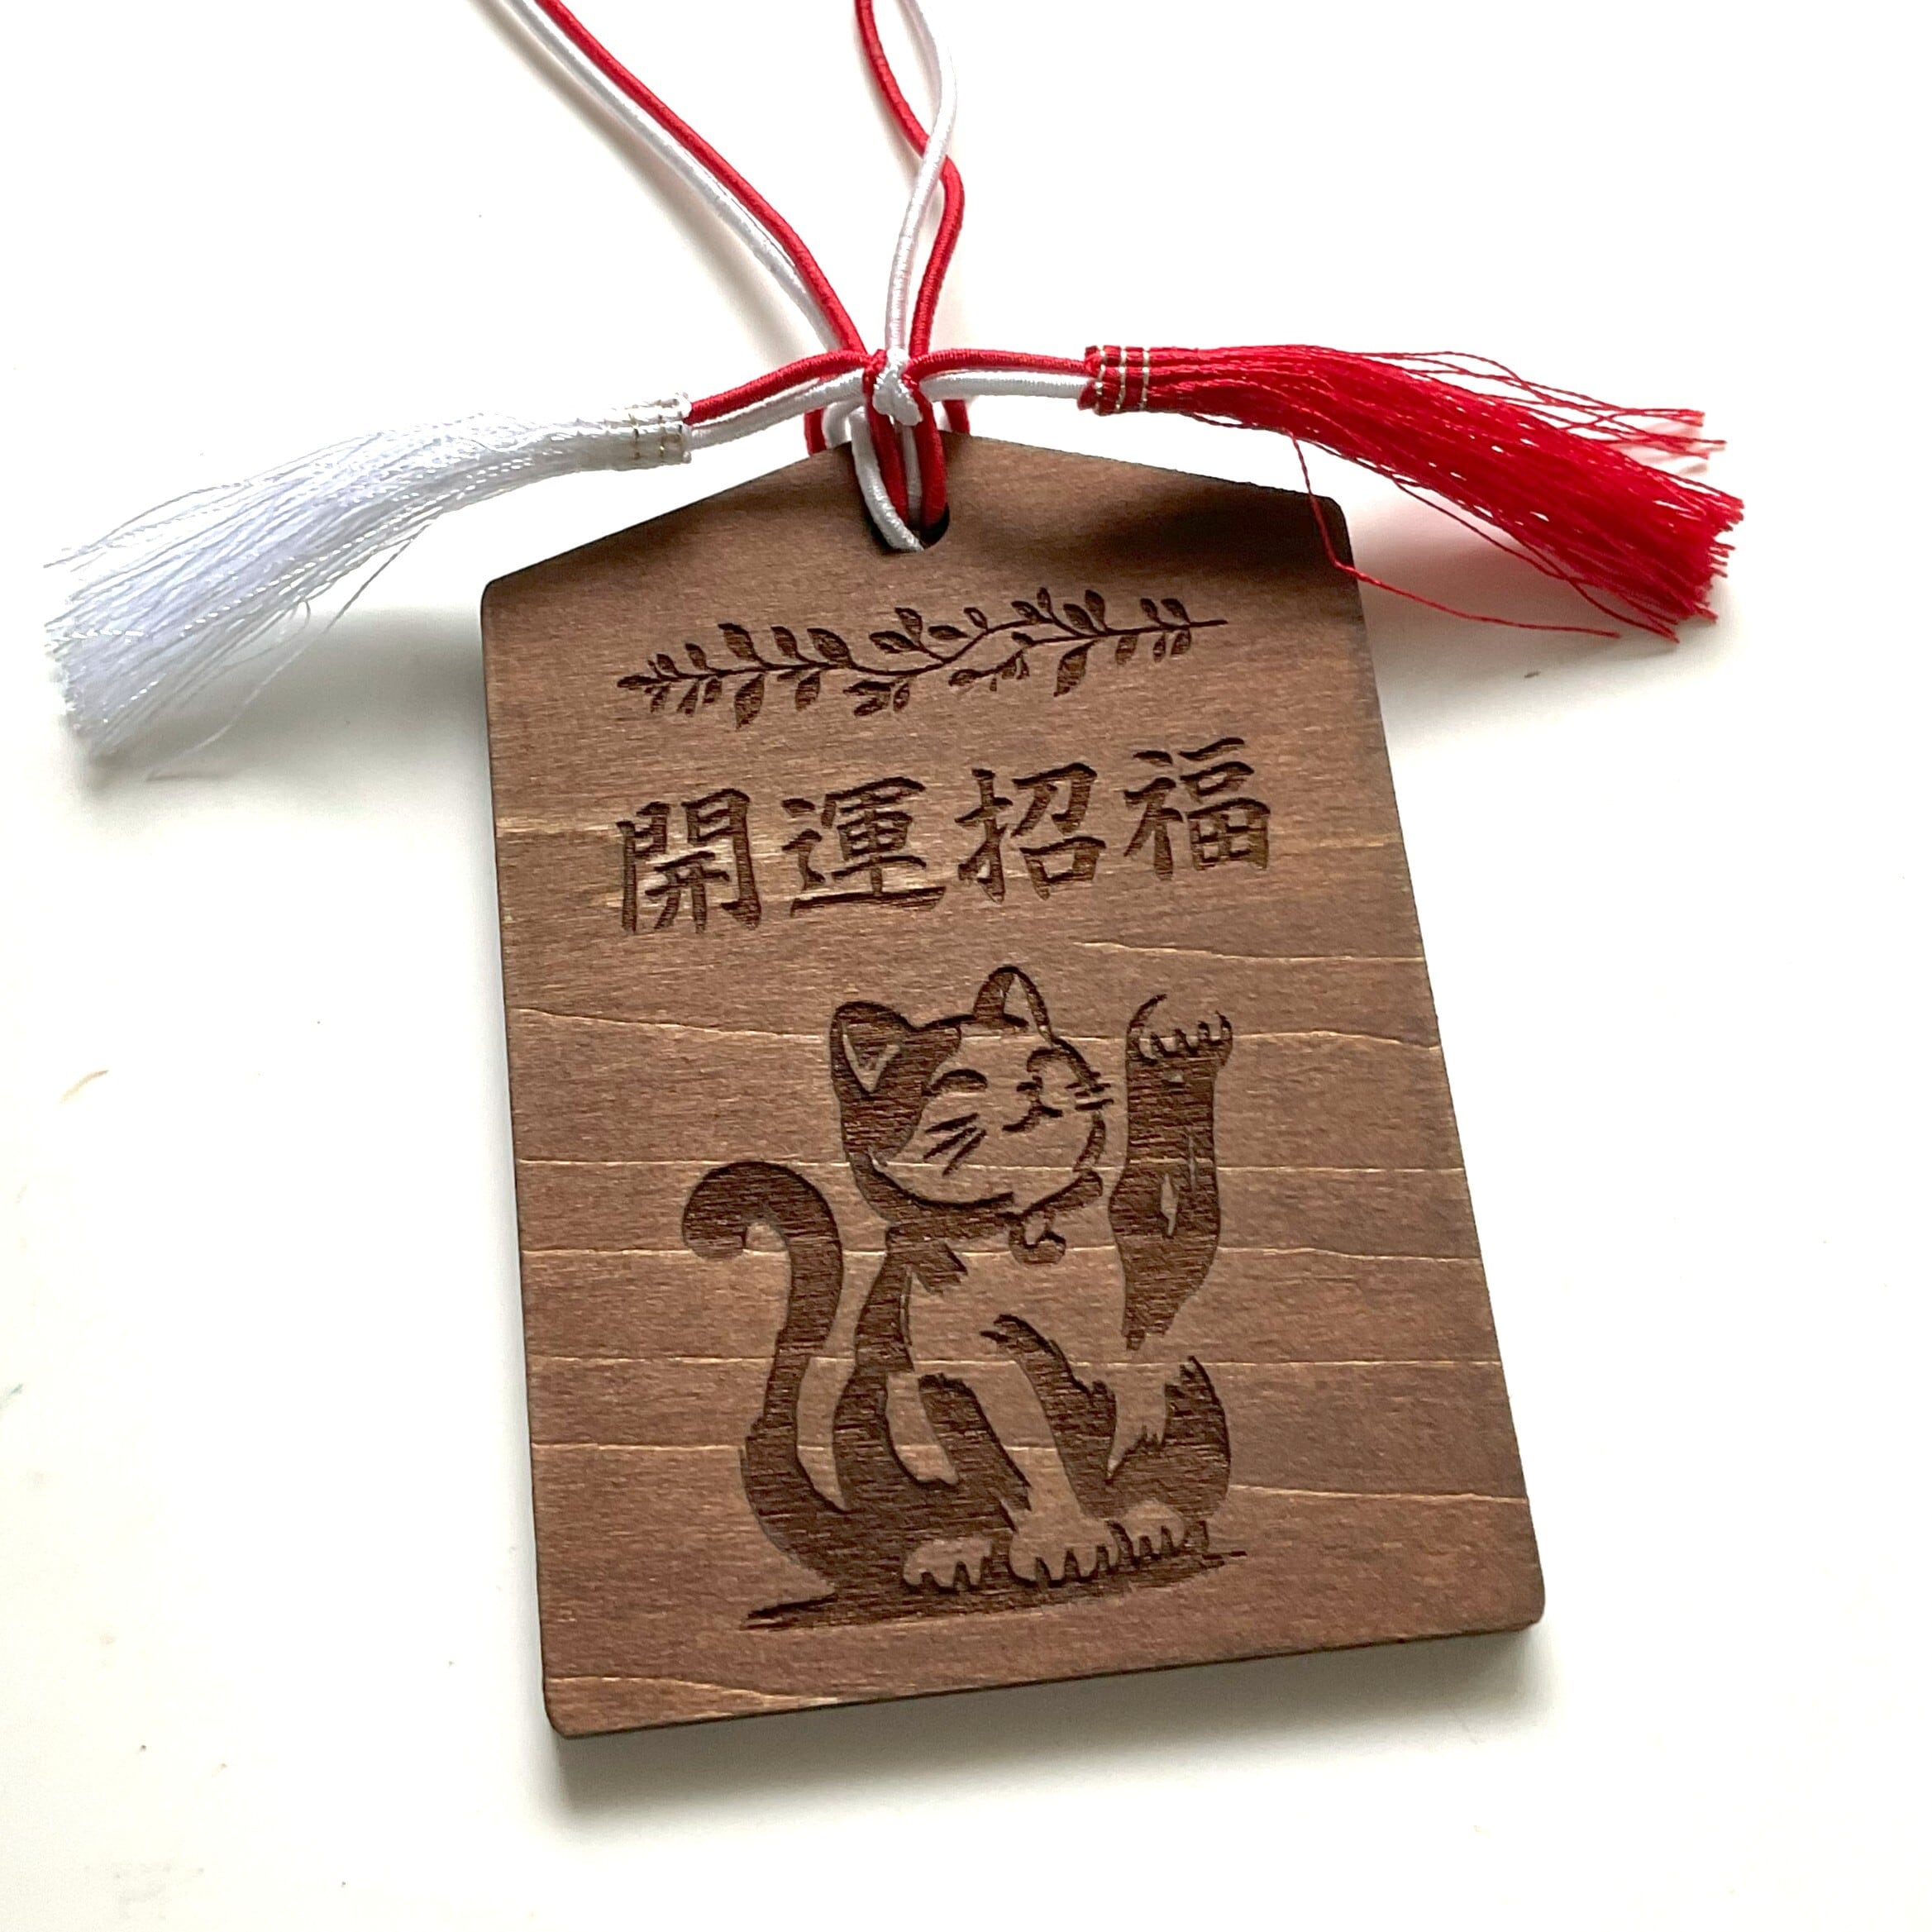 開運招福